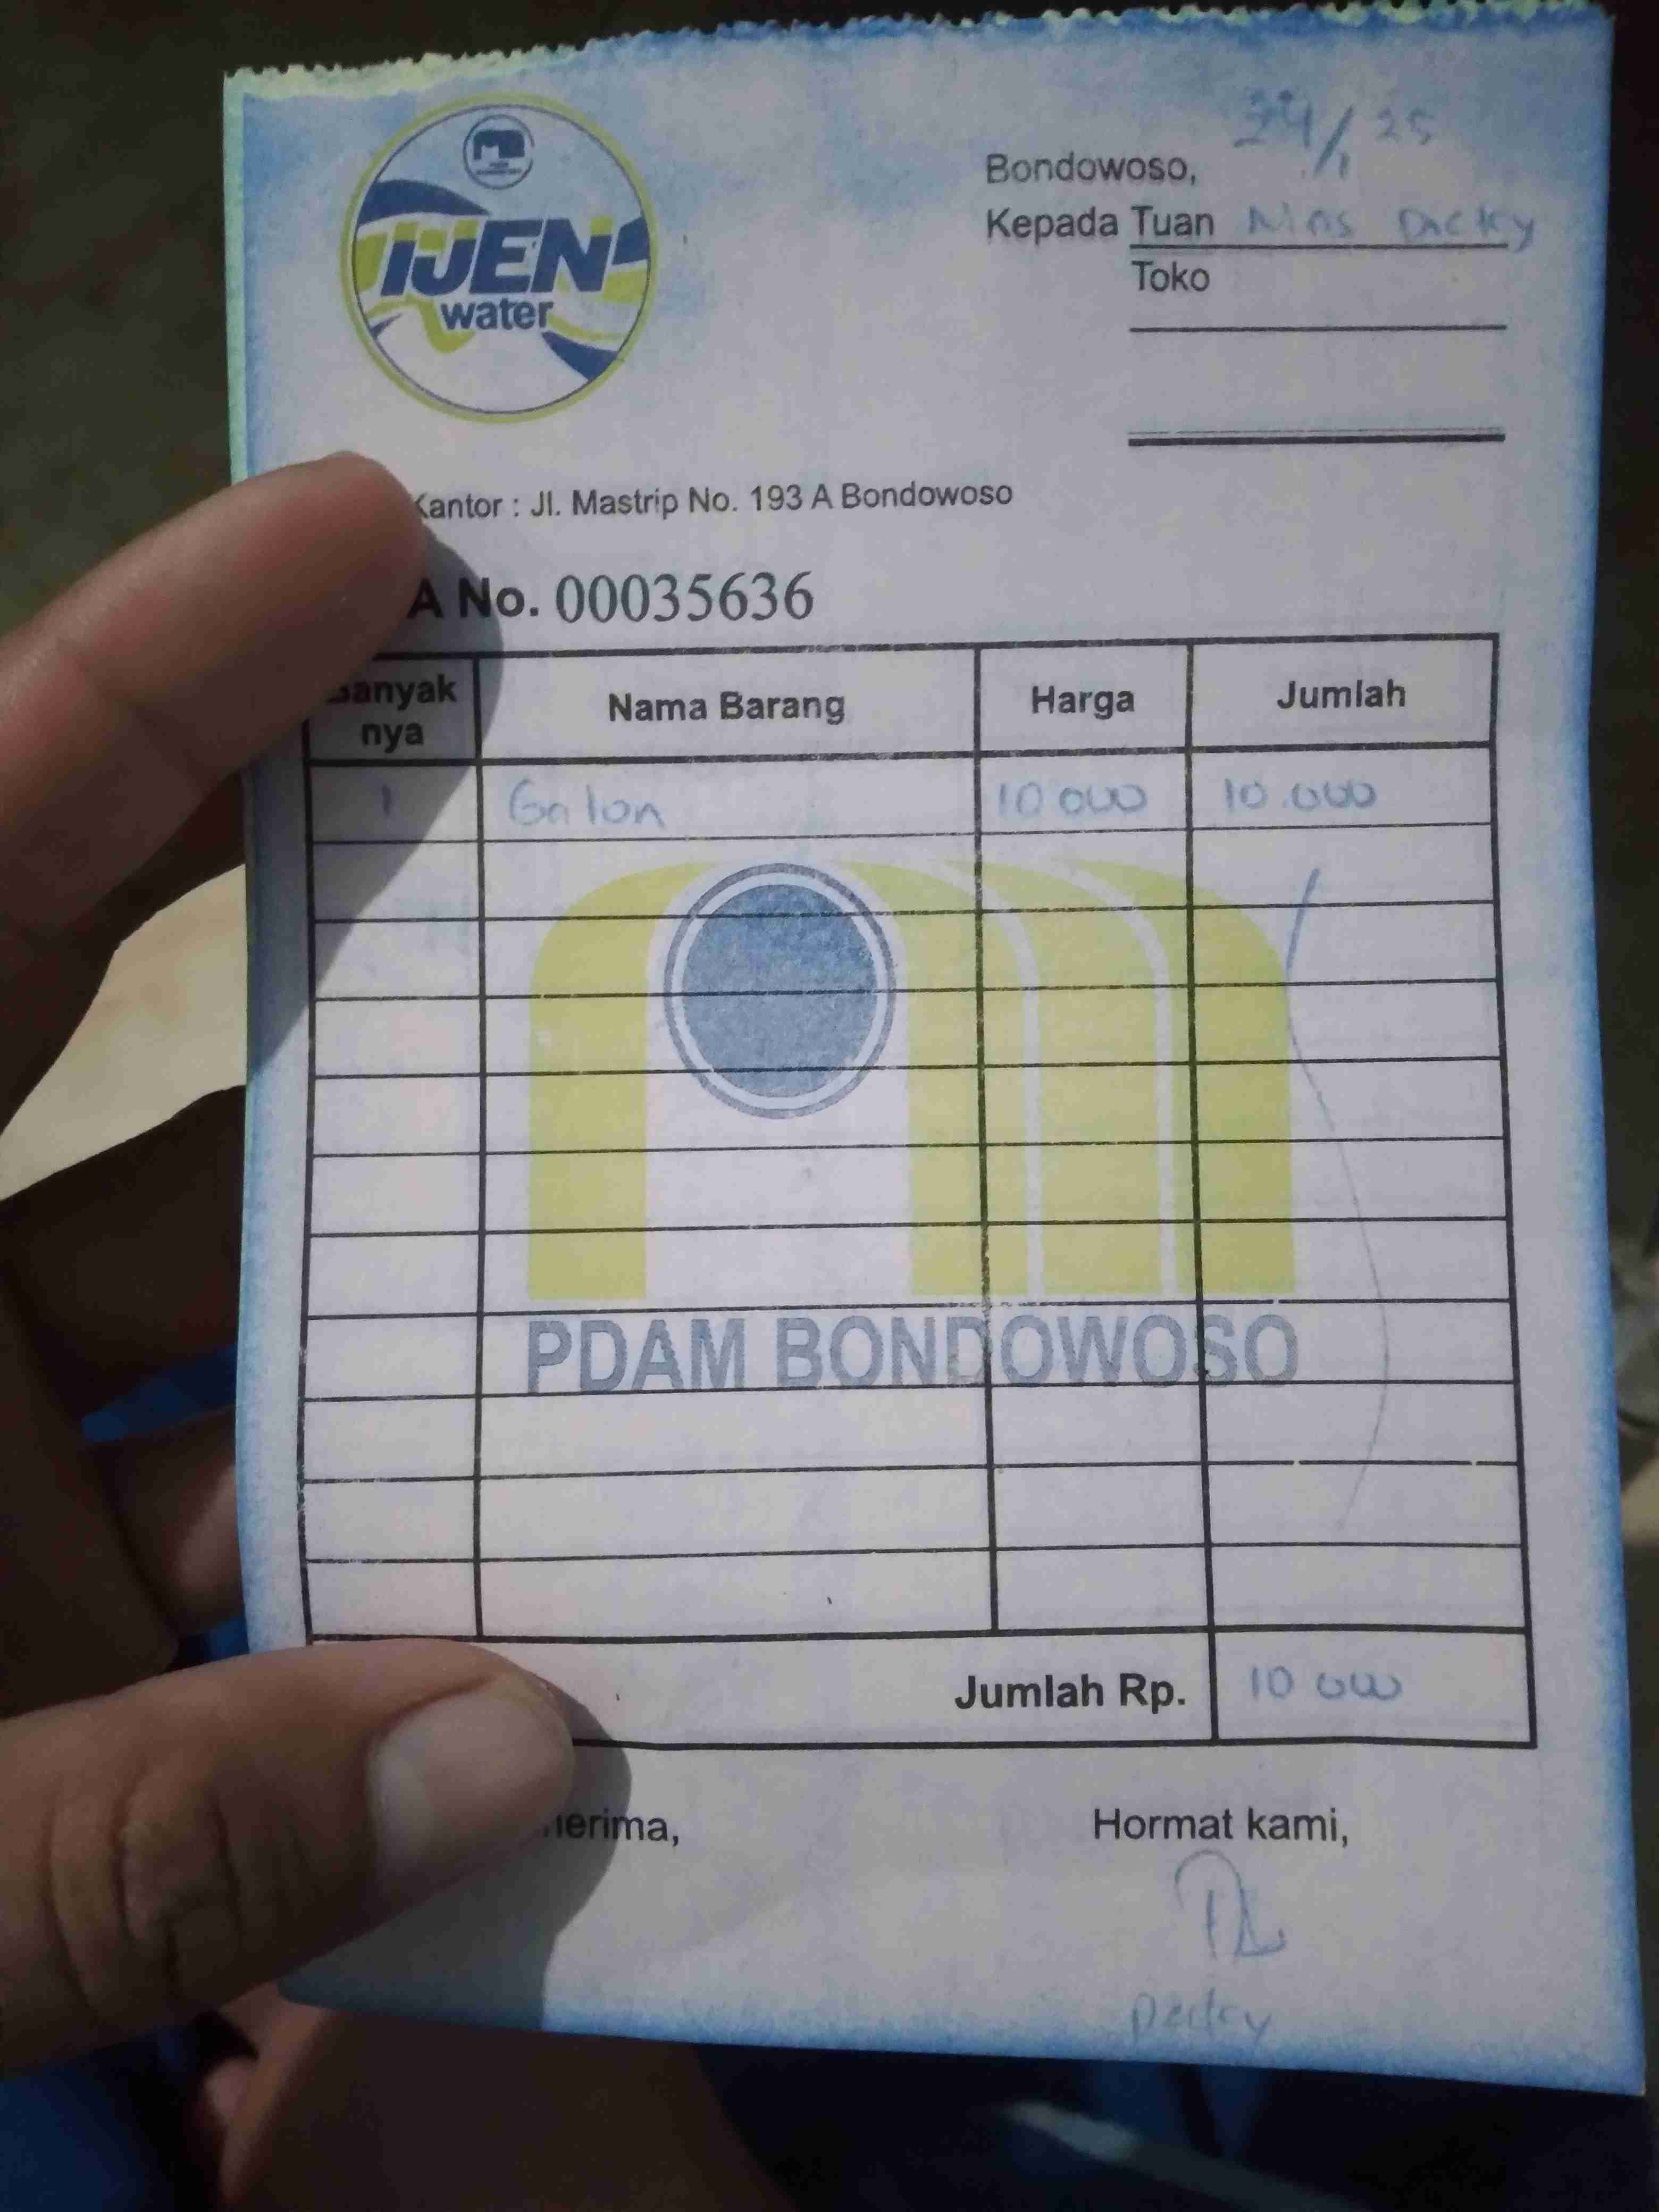 IJEN
water
Bondowoso, /1 25
Kepada Tuan Mas Dicky
Toko
Kantor : Jl. Mastrip No. 193 A Bondowoso
A No. 00035636
Banyak nya Nama Barang Harga Jumlah
1 Galon 10 000 10.000
PDAM BONDOWOSO
Jumlah Rp. 10 000
Hormat kami,